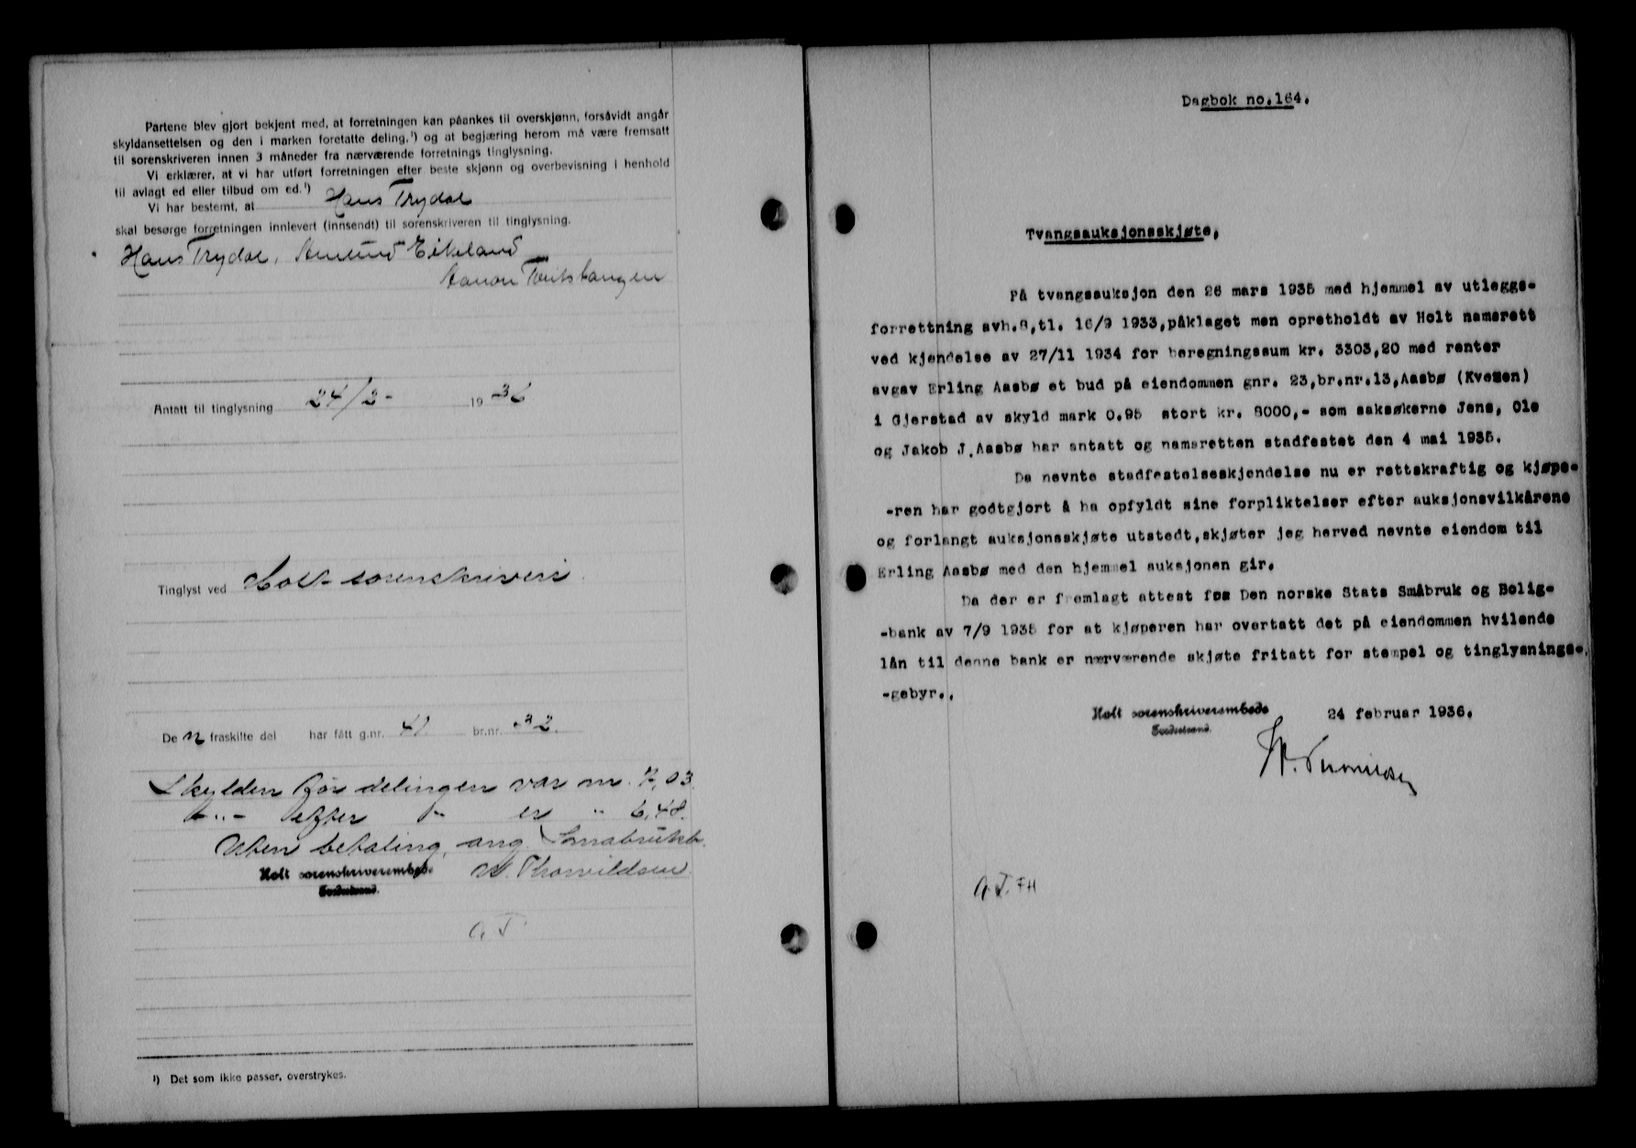 Partene blev gjort bekjent med, at forretningen kan påankes til overskjønn, forsåvidt angår
skyldansettelsen og den i marken foretatte deling,¹) og at begjæring herom må være fremsatt
til sorenskriveren innen 3 måneder fra nærværende forretnings tinglysning.
Vi erklærer, at vi har utført forretningen efter beste skjønn og overbevisning i henhold
til avlagt ed eller tilbud om ed.¹)
Vi har bestemt, at Hans Trydal
skal besørge forretningen innlevert (innsendt) til sorenskriveren til tinglysning.
Hans Trydal, Amund Eikeland
Aanon
Antatt til tinglysning 24/2- 1936
Tinglyst ved Holt sorenskriveri.
De n fraskilte del har fått g.nr. 41 br.nr. 32.
Skylden før delingen var m.
-"- efter -"- er " 6,48.
Uten betaling, ang. Småbrukb.
Holt sorenskriverembede
Tvedestrand.
Thorvildsen
G.T
¹) Det som ikke passer, overstrykes.
Dagbok no.164.
Tvangsauksjonsskjøte,
På tvangsauksjon den 26 mars 1935 med hjemmel av utleggs-
forrettning avh.8,tl. 16/9 1933,påklaget men opretholdt av Holt namsrett
ved kjendelse av 27/11 1934 for beregningssum kr. 3303,20 med renter
avgav Erling Aasbø et bud på eiendommen gnr. 23,br.nr.13,Aasbø (Kvesen)
i Gjerstad av skyld mark 0.95 stort kr. 8000,- som saksøkerne Jens, Ole
og Jakob J.Aasbø har antatt og namsretten stadfestet den 4 mai 1935.
Da nevnte stadfestelseskjendelse nu er rettskraftig og kjøpe-
-ren har godtgjort å ha opfyldt sine forpliktelser efter auksjonsvilkårene
og forlangt auksjonsskjøte utstedt,skjøter jeg herved nevnte eiendom til
Erling Aasbø med den hjemmel auksjonen gir.
Da der er fremlagt attest fra Den norske Stats Småbruk og Bolig-
-bank av 7/9 1935 for at kjøperen har overtatt det på eiendommen hvilende
lån til denne bank er nærværende skjøte fritatt for stempel og tinglysnings-
-gebyr..
Holt sorenskriverembede 24 februar 1936.
Tvedestrand.
G.T. FH